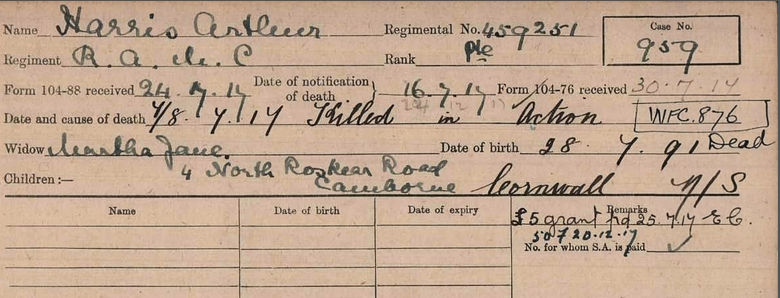 Name Harris Arthur Regimental No. 459251 Case No.
Regiment R. A. M. C Rank Pte 959
Form 104-88 received 24. 7. 17 Date of notification of death } 16. 7. 17 Form 104-76 received 30. 7. 17
24 12 17
Date and cause of death 7/8. 7. 17 Killed in Action WFC. 876
Widow Martha Jane. Date of birth 28. 7. 91 Dead
4 North Roskear Road
Children:— Camborne Cornwall N/S
Name Date of birth Date of expiry Remarks
£5 grant pd 25. 7. 17 EC.
507 20-12-17
No. for whom S.A. is paid ✓